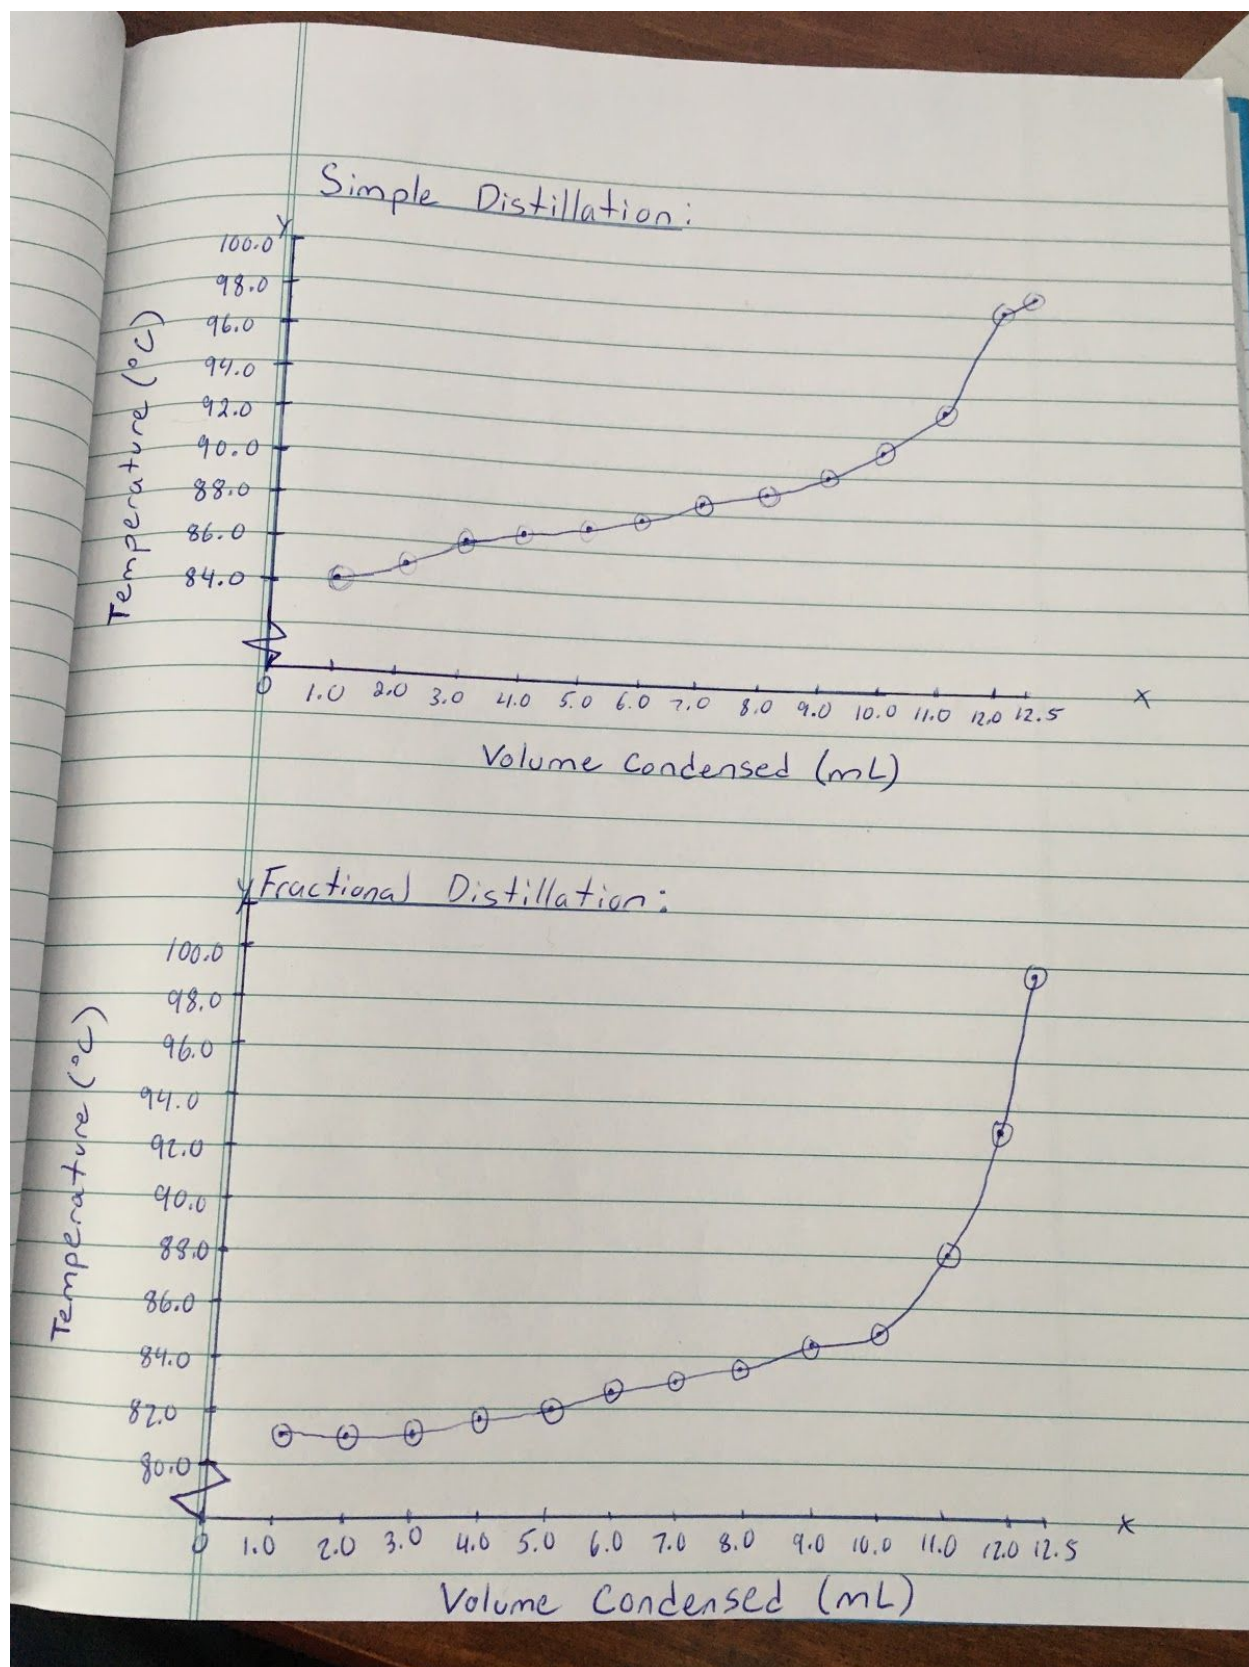 Simple Distillation:
Y
100.0
98.0
96.0
94.0
92.0
90.0
88.0
86.0
84.0
Temperature (°C)
0 1.0 2.0 3.0 4.0 5.0 6.0 7.0 8.0 9.0 10.0 11.0 12.0 12.5 x
Volume Condensed (mL)
Y Fractional Distillation:
100.0
98.0
96.0
94.0
92.0
90.0
88.0
86.0
84.0
82.0
80.0
Temperature (°C)
0 1.0 2.0 3.0 4.0 5.0 6.0 7.0 8.0 9.0 10.0 11.0 12.0 12.5 x
Volume Condensed (mL)